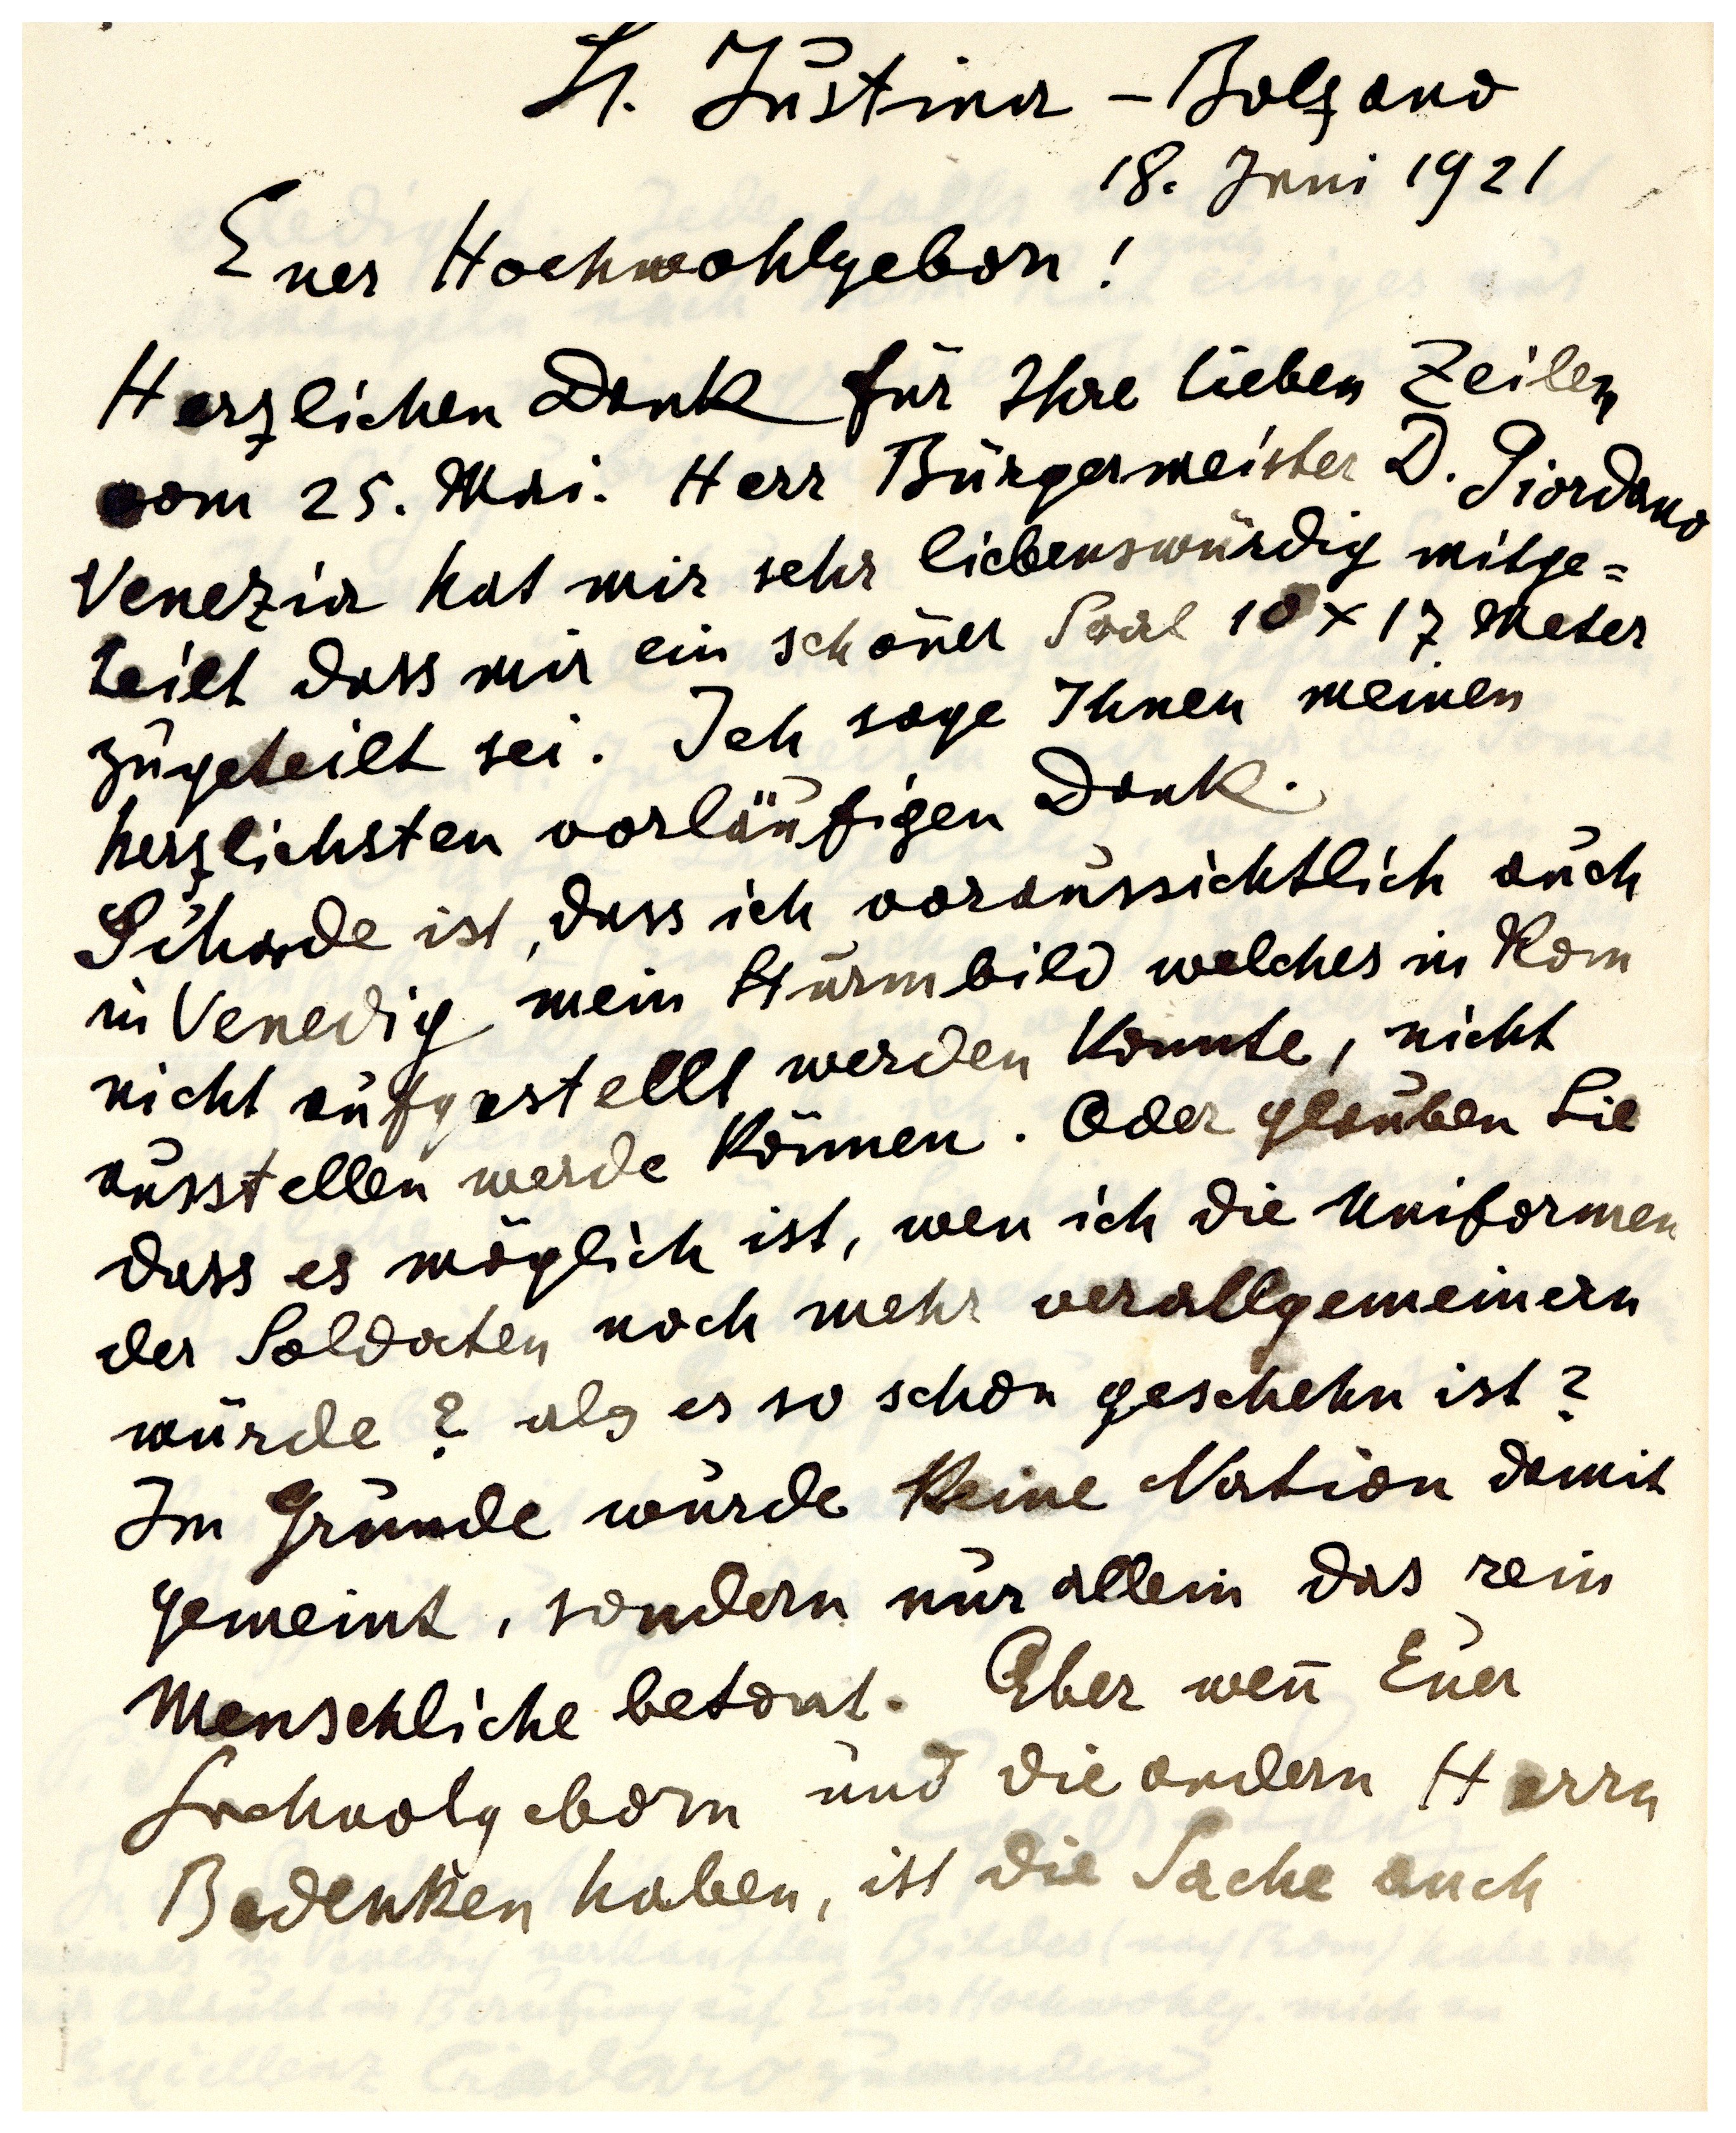 St. Justina – Bolzano
18. Juni 1921
Euer Hochwohlgeborn!
Herzlichen Dank für Ihre lieben Zeilen
vom 25. Mai. Herr Bürgermeister D. Giordano
Venezia hat mir sehr liebenswürdig mitge=
teilt dass mir ein schöner Saal 10 x 17 Meter
zugeteilt sei. Ich sage Ihnen meinen
herzlichsten vorläufigen Dank.
Schade ist, dass ich voraussichtlich auch
in Venedig mein Sturmbild welches in Rom
nicht aufgestellt werden konnte, nicht
ausstellen werde können. Oder glauben Sie
dass es möglich ist, wen ich die Uniformen
der Soldaten noch mehr verallgemeinern
würde? als es so schon geschehn ist?
Im Grunde würde keine Nation damit
gemeint, sondern nur allein das rein
Menschliche betont. Aber wen̄ Euer
Hochwolgeborn und die andern Herrn
Bedenken haben, ist die Sache auch